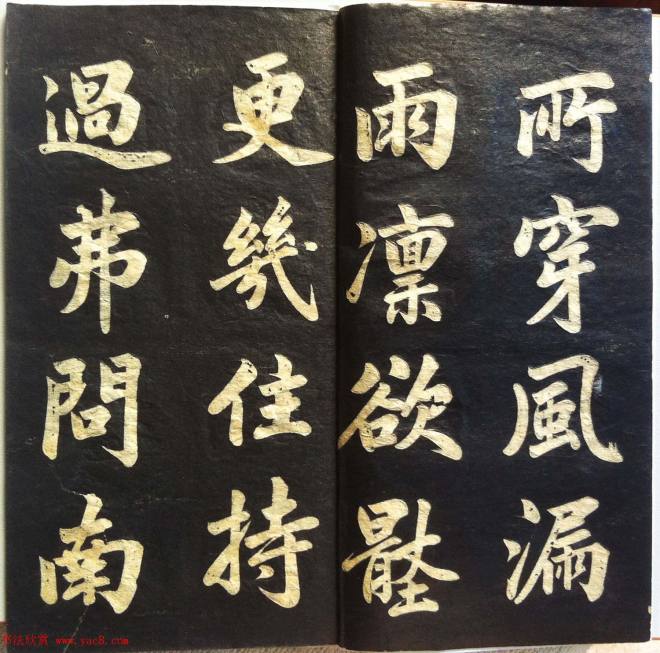 所穿風漏
雨凛欲
更幾住持
過弗問南
书法欣赏 www.yac8.com